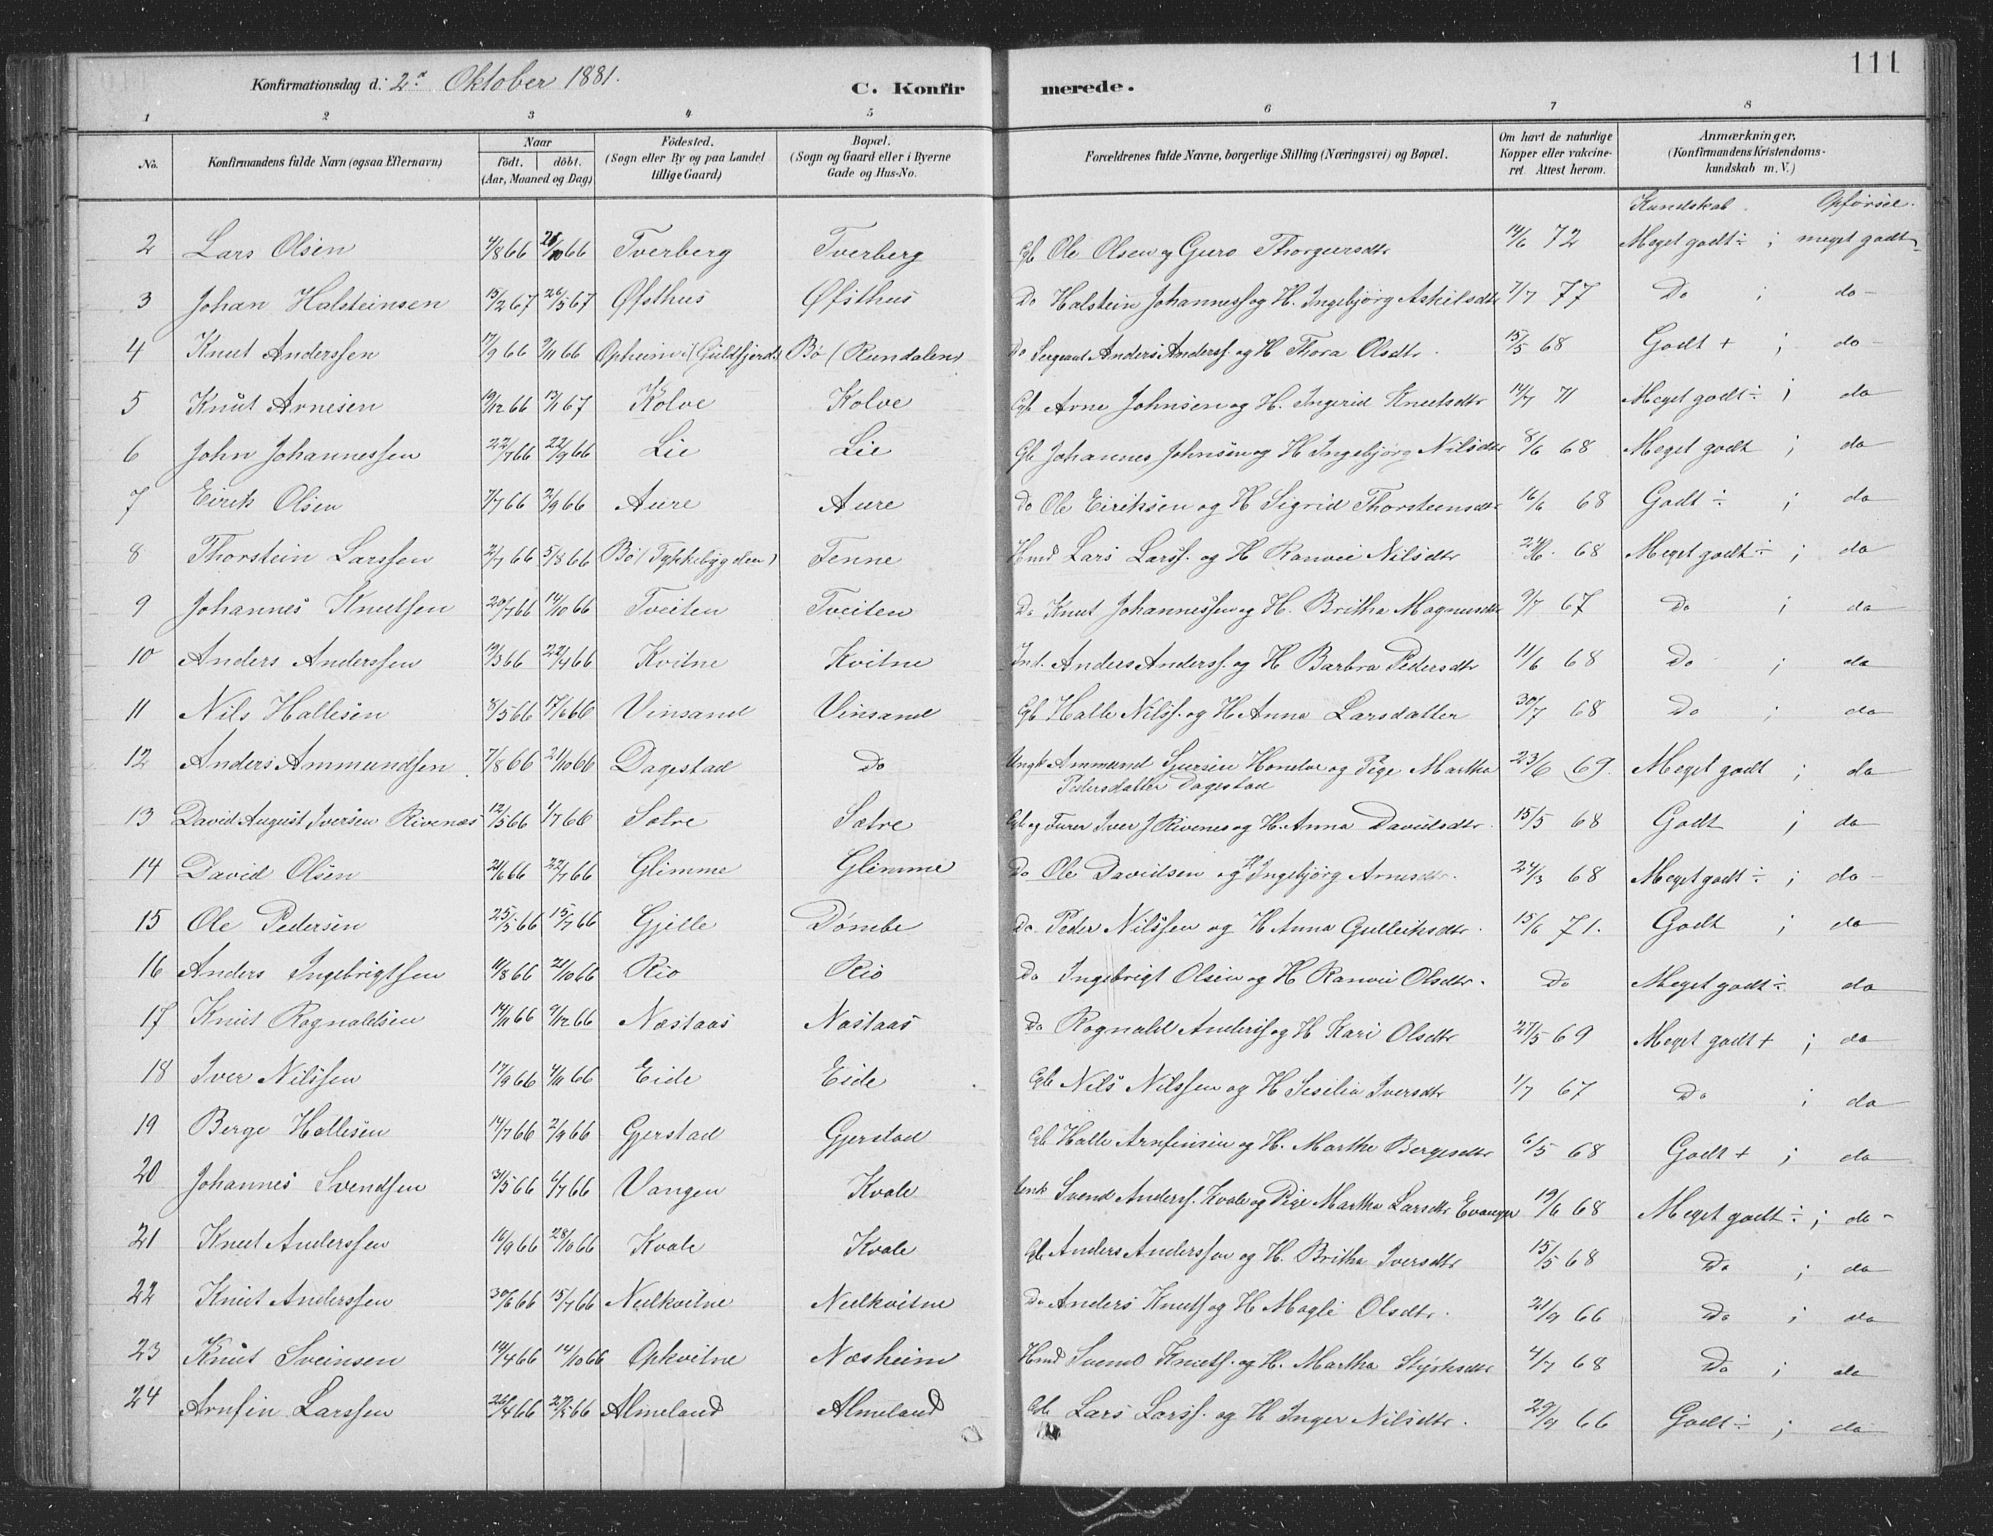 111
Konfirmationsdag d: 2den Oktober 1881.
C. Konfirmerede.
1 2 3 4 5 6 7 8
No. Konfirmandens fulde Navn (ogsaa Efternavn) Naar födt. döbt. (Aar, Maaned og Dag) Födested. (Sogn eller By og paa Landet tillige Gaard) Bopæl. (Sogn og Gaard eller i Byerne Gade og Hus-No. Forældrenes fulde Navne, borgerlige Stilling (Næringsvei) og Bopæl. Om havt de naturlige Kopper eller vakcineret. Attest herom. Anmærkninger. (Konfirmandens Kristendomskundskab m. V.)
Kundskab. Opførsel.
2 Lars Olsen 4/8 66 21/10 66 Tverberg Tverberg Gb Ole Olsen og Guro Thorgersdtr 14/6 72 Meget godt ÷ ; meget godt
3 Johan Halsteinsen 15/2 67 26/5 67 Øfsthus Øfsthus Do Halstein Johannesf og H. Ingebjörg Askilsdtr 7/7 77 Do ; do
4 Knut Anderssen 17/9 66 2/11 66 Opheim (Guldfjord) Bö (Rundalen) Do Sergeant Anders Andersf. og H Thora Olsdtr. 15/5 68 Godt + ; do
5 Knut Arnesen 19/12 66 13/1 67 Kolve Kolve Gb Arne Johnsen og H. Ingerid Knutsdtr 14/7 71 Meget godt ÷ ; do
6 John Johannessen 22/7 66 22/9 66 Lie Lie Gb Johannes Johnsen og H Ingebjörg Nilsdtr 8/6 68 Meget godt ; do
7 Eirik Olsen 7/7 66 2/9 66 Aure Aure Do Ole Eiriksen og H Sigrid Thorsteinsdtr 16/6 68 Godt ÷ ; do
8 Thorstein Larssen 2/7 66 5/8 66 Bö (Tykkebygden) Tenne Hmd Lars Larsf. og H Ranvei Nilsdtr 24/6 68 Meget godt ÷ ; do
9 Johannes Knutsen 20/7 66 14/10 66 Tveiten Tveiten Do Knut Johannessen og H. Britha Magnusdtr 9/7 67 Do ; do
10 Anders Anderssen 19/3 66 22/4 66 Kvitne Kvitne Ind. Anders Andersf. og H Barbra Pedersdtr 11/6 68 Do ; do
11 Nils Hallesen 3/5 66 17/6 66 Vinsand Vinsand Gb Halle Nilsf. og H Anna Larsdatter 30/7 68 Do ; do
12 Anders Ammundsen 7/8 66 21/10 66 Dagestad Do Ungk Ammund Sjursen Hondve og Pige Martha 23/6 69. Meget godt ; do
Pedersdatter Dagestad
13 David August Iversen Rivenæs 12/5 66 1/7 66 Sætre Sætre Gb og Furer Iver J Rivenes og H. Anna Davidsdtr. 15/5 68 Godt ; do
14 David Olsen 21/6 66 22/7 66 Glimme Glimme Do Ole Davidsen og H Ingebjörg Arnesdtr. 24/3 68 Meget godt ÷ ; do
15 Ole Pedersen 25/5 66 15/7 66 Gjelle Dömbe Do Peder Nilssen og H Anna Gulleiksdtr. 15/6 71. Godt ; do
16 Anders Ingebrigtsen 11/8 66 21/10 66 Rio Rio Do Ingebrigt Olsen og H Ranvei Olsdtr. Do Meget godt ÷ do
17 Knut Rognaldsen 14/11 66 9/12 66 Næstaas Næstaas Do Rognald Andersf og H Kari Olsdtr 27/5 69 Meget godt + ; do
18 Iver Nilssen 17/9 66 4/11 66 Eide Eide Gb Nils Nilssen og H Sesilia Iversdtr 1/7 67 Do ; do
19 Berge Hallesen 14/7 66 2/9 66 Gjerstad Gjerstad Gb Halle Arnfinsen og H. Martha Bergesdtr 6/5 68 Godt + ; do
20 Johannes Svendsen 31/5 66 6/7 66 Vangen Kvale Svend Andersf. Kvale og Pige Martha Larsdtr Evanger 19/6 68 Meget godt ÷ ; do
21 Knut Anderssen 16/9 66 28/10 66 Kvale Kvale Gb Anders Anderssen og H. Britha Iversdtr 15/5 68 Do ; do
22 Knut Anderssen 30/6 66 15/7 66 Nedkvitne Nedkvitne Do Anders Knutf og H Magli Olsdtr. 21/9 66 Do ; do
23 Knut Sveinsen 19/4 66 14/10 66 Opkvitne Næsheim Hmd Svend Knutf. og H. Martha Styrksdtr 4/7 68 Do ; do
24 Arnfin Larssen 26/4 66 27/5 66 Almeland Almeland Gb Lars Larsf. og H Inger Nilsdtr. 29/9 66 Godt ÷ ; do